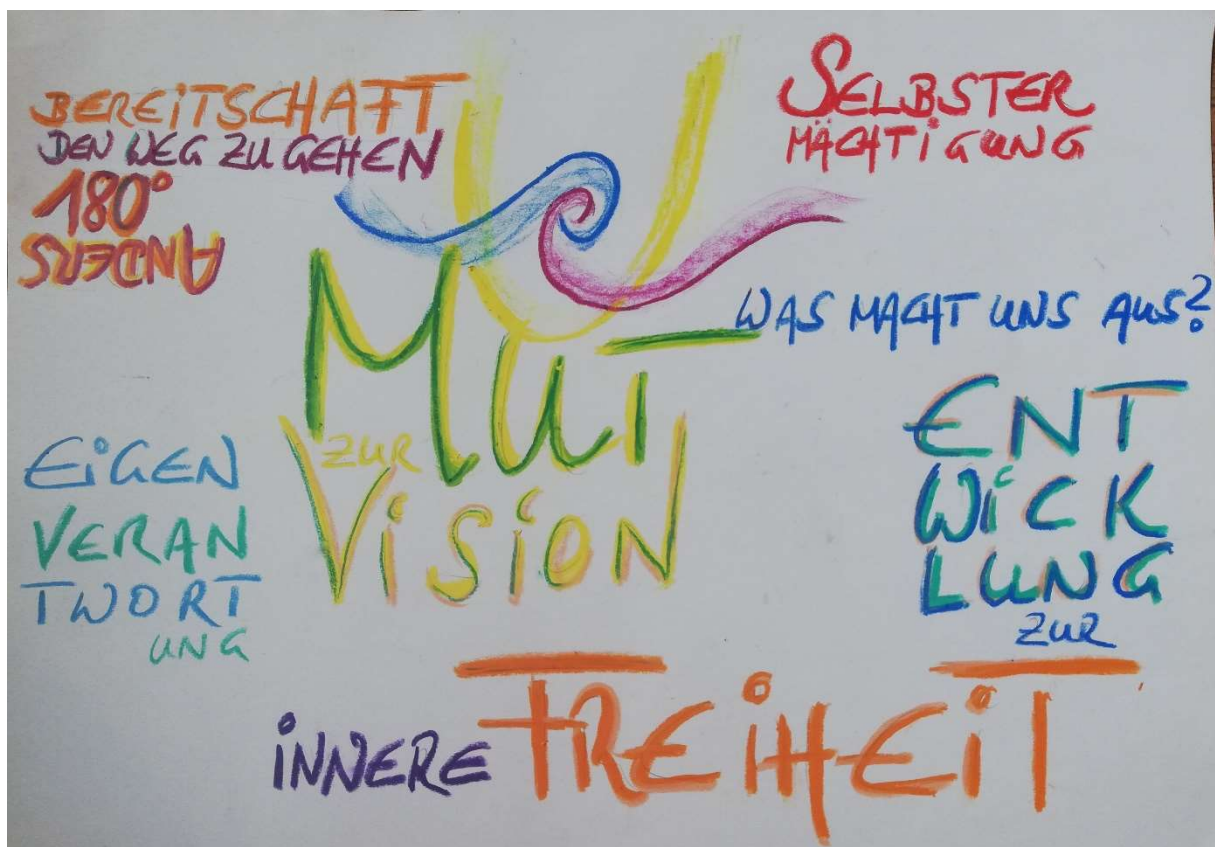 BEREiTSCHAFT
DEN WEG ZU GEHEN
180°
ANDERS
SELBSTER
MÄCHTiGUNG
WAS MACHT UNS AUS?
MUT
ZUR
ViSiON
EiGEN
VERAN
TWORT
UNG
ENT
WiCK
LUNG
ZUR
iNNERE FREiHEiT